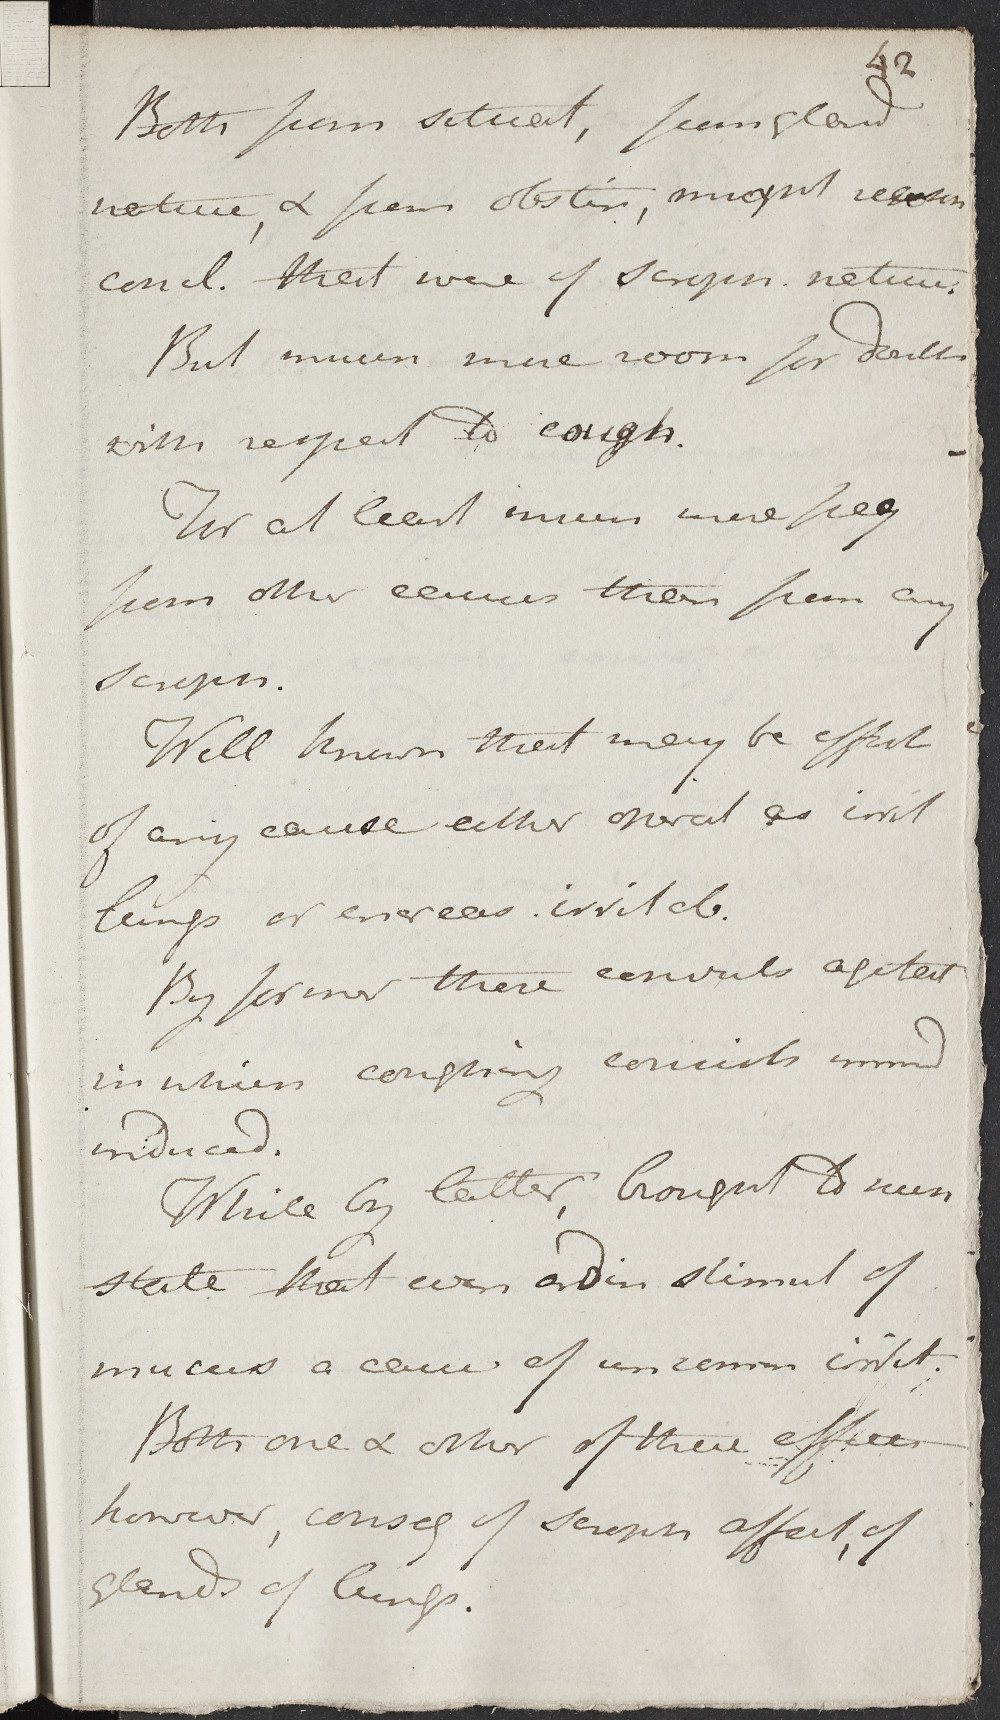 42
Both from situat, from gland
nature, & from obstin, might reason
concl. that were of scroph. nature.
But much more room for doubt
with respect to cough.
For at least much more freq
from other causes than from any
scroph.
Well known that may be effect
of any cause either operat as irrit
lungs or increas. irritab.
By former there convuls agitat
in which coughing consists immed
induced.
While by latter, brought to such
state that even ordin stimul of
mucus a cause of uncomm irrit.
Both one & other of these effects
however, conseq of scroph affect, of
glands of lungs.